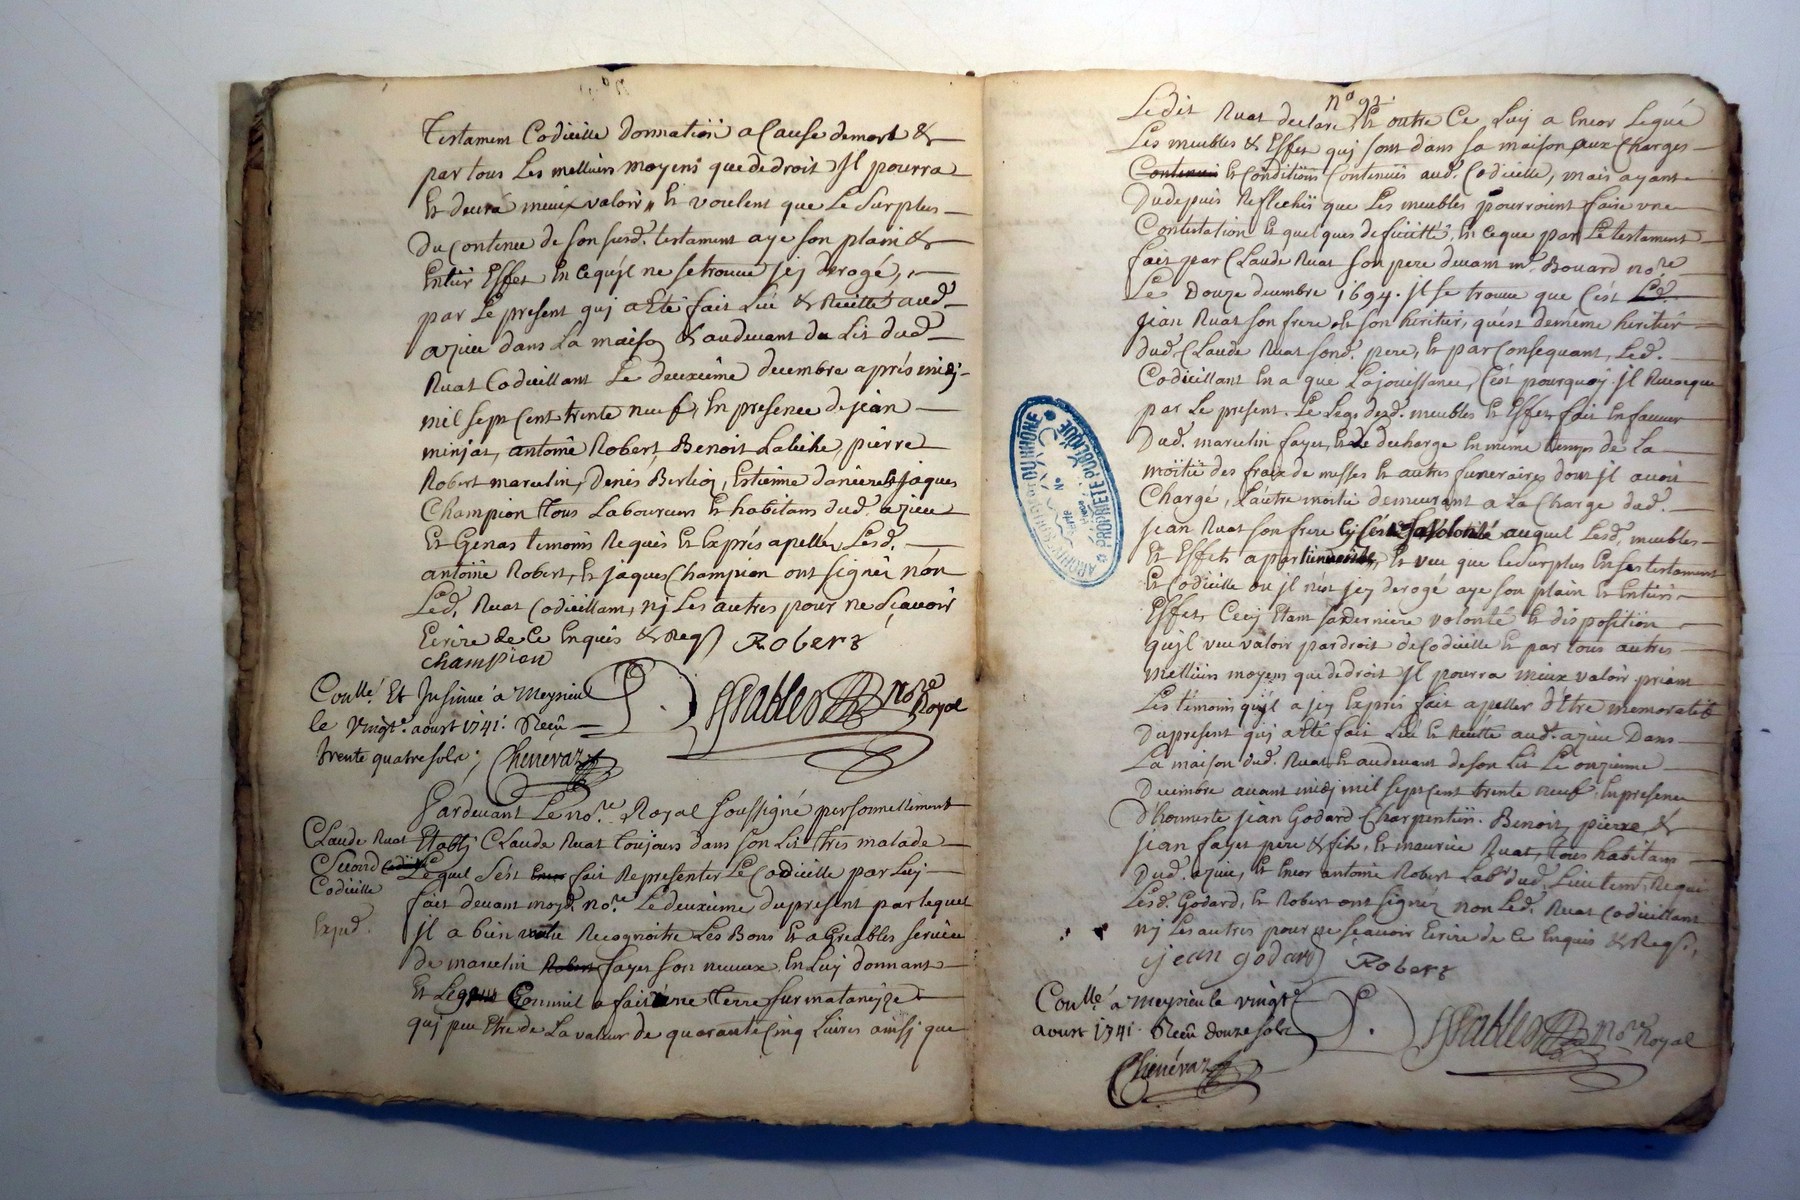 Testament Codicille donnation a Cause demort &
par tous Les mellieurs moyens que de droit Jl pourra
Et devra mieux valoir, Et voulent que Le Surplus
Du Contenu de son susd. testament aye son plain &
Entier Effet En ce quÿl ne se trouve jcy derogé,
par Le present quj a Eté fait Lu & Recitté aud.
azieu dans La maison & audevant du Lit dud.
Ruat Codicillant Le deuxieme decembre après midj
mil sept Cent trente neuf, En presence de jean
minjat, antoine Robert, Benoit Labiche, pierre
Robert marcelin, Denis Berlioz, Estienne daniere & jaques
Champion Tous Laboureurs Et habitans dud. azieu
Et Genas temoins Requis Et Exprés apellés Lesd.
antoine Robert, Et jaques Champion ont signéz non
Led. Ruat Codicillant, nj Les autres pour ne sçavoir
Ecrire de Ce Enquis & Reqs Robert
champion
Coullé Et Jnsinué à Meysieu
le vingte. aoust 1741. Receu
trente quatre sols; Chenevaz
Nore Royal
Pardevant Le nore. Royal soussigné personnellement
Claude Ruat
Etablj Claude Ruat toujours dans son Lit tres malade
Second
Codicille
Lequel s'est fait Representer Le Codicille par Luj
fait devant moyd. nore. Le deuxieme du present par lequel
Exped.
jl a bien voulu Recognoitre Les Bons Et aGreables services
de marcelin Robert fayet son neveux En Luj donnant
Et Legant Comme il a fait une Terre sur mataneyze
quj peu Etre de La valeur de quarante Cinq Livres ainsj que
no 92.
Ledit Ruat declare, Et outre Ce Luj a Encor Legué
Les meubles & Effets quj sont dans sa maison aux Charges
Contenues Et Conditions Contenues aud. Codicille, mais ayant
Dudepuis Reflechit que Les meubles pourroient faire une
Contestation Et quelques deficultté, En ce que par Le testament
fait par Claude Ruat son pere devant me. Bouard nore.
Le Douze decembre 1694. Jl se trouve que C'est Led.
jean Ruat son frere Et son heritier, qu'est de même heritier
dud. Claude Ruat sond. pere, Et par Consequant, Led.
Codicillant En a que La jouissance, C'est pourquoy jl Revoque
par Le present Le Legs desd. meubles Et Effets fait En faveur
Dud. marcelin fayet, Et Le decharge En meme temps de La
moitié des fraix de messes Et autres funeraires dont jl avoit
Chargé, L'autre moitié demeurant a La Charge dud.
jean Ruat son frere sa volonté auquel Lesd. meubles
Et Effets appartiennent, Et veu que Le surplus En ses testament
Et Codicille ou jl n'est jcy derogé aye son plain Et Entier
Effet, Cecy Etant sa derniere volonté Et disposition
quÿl veu valoir par droit de Codicille Et par tous autres
Mellieurs moyens que de droit Jl pourra mieux valoir priant
Les témoins quÿl a jcy Exprés fait apeller d'Etre memoratifs
Du present quj a Eté fait Lu & Recité aud. azieu Dans
La maison dud. Ruat Et audevant de son Lit Le onzieme
Decembre avant midj mil sept Cent trente neuf, En presence
D'honneste jean Godard Charpentier. Benoit, pierre &
jean fayet pere & fils, Et maurice Ruat, tous habitans
Dud. azieu, Et Encor antoine Robert Labr. dud. Lieu tem. Requis
Lesd. Godard, Et Robert ont signéz non Led. Ruat Codicillant
nj Les autres pour ne sçavoir Ecrire de Ce Enquis & Reqs.
jean godard Robert
Coullé à Meysieu le vingte
aoust 1741. Receu douze sols
Chenévaz
Nore Royal
DU RHÔNE
PROPRIÉTÉ PUBLIQUE